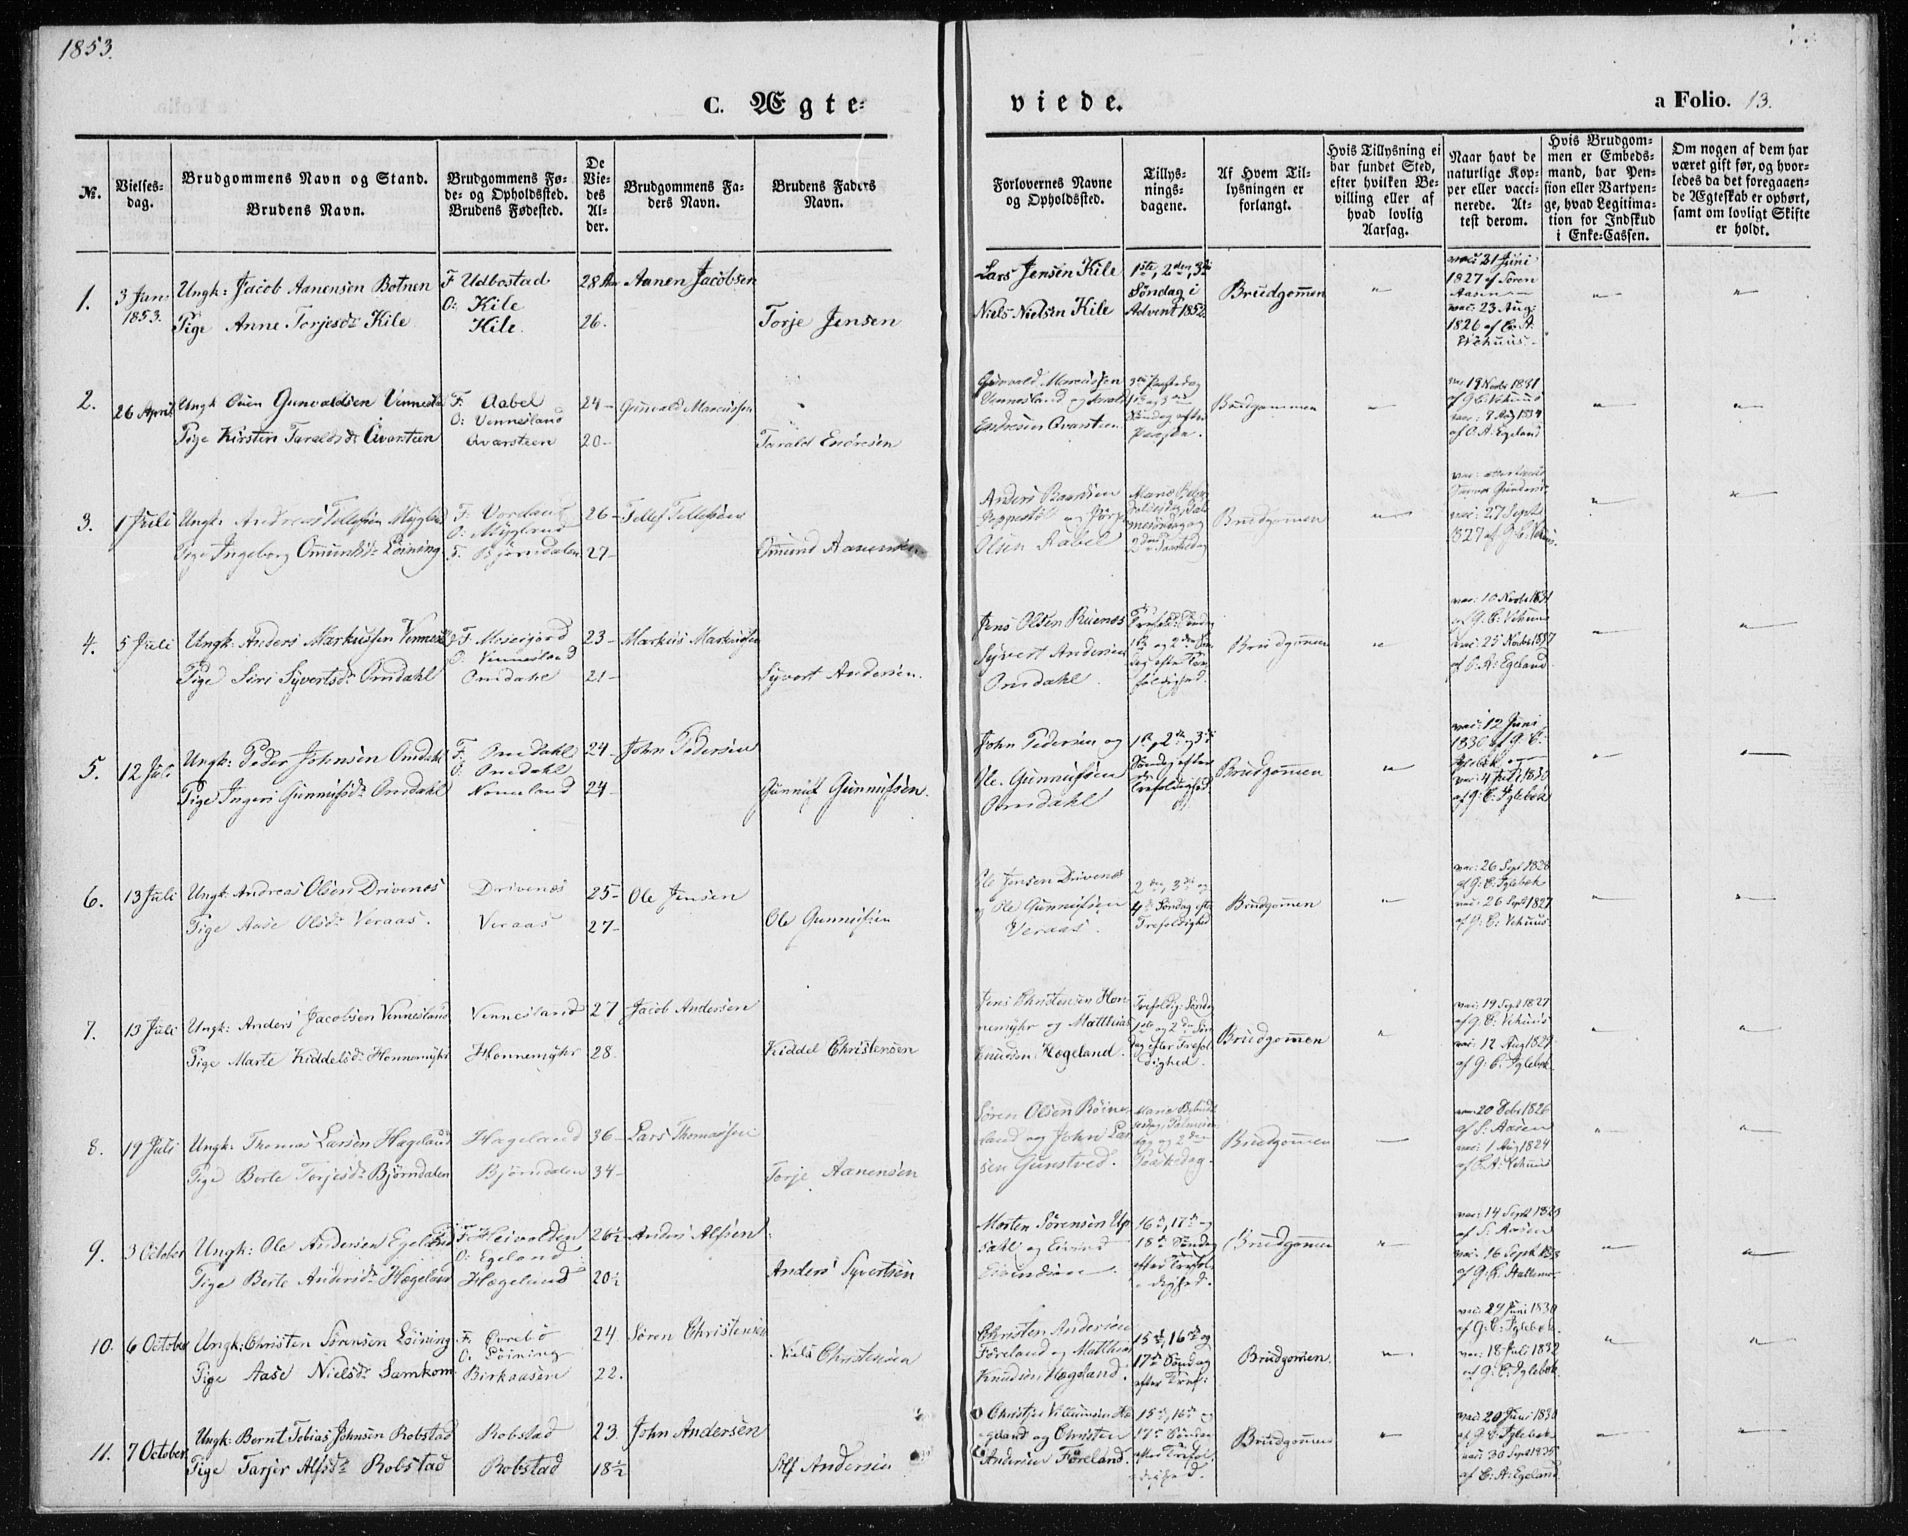 1853.
C. Ægte-
viede.
a Folio. 13.
No.
Vielses-
dag.
Brudgommens Navn og Stand.
Brudens Navn.
Brudgommens Fø-
de- og Opholdssted.
Brudens Fødested.
De
Vie-
des
Al-
der.
Brudgommens Fa-
ders Navn.
Brudens Faders
Navn.
Forlovernes Navne
og Opholdssted.
Tillys-
nings-
dagene.
Af Hvem Til-
lysningen er
forlangt.
Hvis Tillysning ei
har fundet Sted,
efter hvilken Be-
villing eller af
hvad lovlig
Aarsag.
Naar havt de
naturlige Kop-
per eller vacci-
nerede. At-
test derom.
Hvis Brudgom-
men er Embeds-
mand, har Pen-
sion eller Vartpen-
ge, hvad Legitima-
tion for Indskud
i Enke-Cassen.
Om nogen af dem har
været gift før, og hvor-
ledes da det foregaaen-
de Ægteskab er ophørt,
samt om lovligt Skifte
er holdt.
1.
3 Jan:
1853.
Ungk: Jacob Aanensen Botnen
Pige Anne Torjesdr Kile
F Udbostad
O: Kile
Kile.
28 Aar
26.
Aanen Jacobsen
Torje Jensen
Lars Jensen Kile
Niels Nielsen Kile
1ste, 2den, 3die
Søndag i
Advent 1852
Brudgommen
"
vac: 21 Juni
1827 af Søren
Aasen
vac: 23 Aug:
1826 af C. A.
Vehuus.
"
"
2.
26 April
Ungk Ouen Gunvaldsen Vennesla
Pige Kirsten Taraldsdr Qvarsteen
F. Aabel
O: Vennesland
Qvarsteen
24-
20-
Gunvald Marcussen
Tarald Endresen
Gunvald Marcussen
Vennesland og Tarald
Endresen Qvarsteen
Søndag efter
Paaske.
Brudgommen
"
19 Novbr 1831
af G. C. Vehuus
vac: 8 Aug 1834
af C. A. Egeland
"
"
3.
1 Juli
Ungk: Andreas Tellefsen Mygland
Pige Ingeborg Omundsdr Løining
O: Mygland
F. Bjørndalen
26-
27-
Tellef Tellefsen
Omund Aanensen
Anders
og
Olsen Aabel
2den Paaskedag
Brudgommen
"
vac: 27 Septr
1827 af G. C. Vehuus
"
"
4.
5 Juli
Ungk: Anders Markussen Vennesld
Pige Siri Syvertsdr Omdahl
F. Moseigord
O. Vennesland
Omdahl
23-
21-
Markus Markussen
Syvert Andersen.
Jens Olsen Ruenes
Syvert Andersen
Omdahl.
Trefold: Søndag
1ste og 2den Søn-
dag efter Tre-
foldighed.
Brudgommen
"
vac: 10 Novbr 1831
af G. C. Vehuus
vac: 25 Novbr 1837
af C. A. Egeland
"
"
5.
12 Juli
Ungk: Peder Johnsen Omdahl
Pige Ingeri Gunnufsdr Omdahl
F. Omdahl
O: Omdahl
Nomeland
24-
24-
John Pedersen
Gunnuf Gunnufsen.
John Pedersen og
Ole Gunnufsen
Omdahl
1ste, 2den og 3die
Søndag efter
Trefoldighed
Brudgommen
"
vac: 12 Juni
1830 af G. C.
Iglebæk og
vac: 4 Juli 1830
af G. C. Iglebæk
"
"
6.
13 Juli
Ungk: Andreas Olsen Drivenes
Pige Aase Olsdr Veraas.
Drivenes
Veraas
25-
27-
Ole Jensen
Ole Gunnufsen
Ole Jensen Drivenes
og Ole Gunnufsen
Veraas.
2den, 3die og
4de Søndag eft:
Trefoldighed
Brudgommen
"
vac: 26 Sept 1828
af G. C. Iglebæk
vac: 26 Septr 1827
af G. C. Vehuus
"
"
7.
13 Juli
Ungk: Anders Jacobsen Vennesland
Pige Marte Kiddelsdr Honnemyhr
Vennesland
Honnemyhr
27
28.
Jacob Andersen
Kiddel Christensen
Jens Christensen Hon-
nemyhr og Matthias
Knudsen Hægeland.
Trefoldig: Sønda
1ste og 2den Søn-
dag efter Trefol-
dighed.
Brudgommen
"
vac: 19 Sept 1827
af G. C. Vehuus
vac: 12 Aug 1827
af G. C. Iglebæk.
"
"
8.
19 Juli
Ungk: Thomas Larsen Hægeland
Pige Berte Torjesdr Bjørndalen
Hægeland
Bjørndalen
36-
34-
Lars Thomassen
Torje Aanensen
Søren Olsen Røine-
land og John Lar-
sen Gunstved.
Maria Bebud-
elsdag, Palmesøn-
dag og 2den
Paaskedag.
Brudgommen
"
vac: 20 Debr 1826
af S. Aasen
vac: 1 Aug 1824
af C. A. Vehuus
"
"
9.
3 October
Ungk: Ole Andersen Egeland
Pige Berte Andersdr Hægeland
F. Heivolden
O: Egeland
Hægeland
26½
20½
Anders Alfsen
Anders Syvertsen
Morten Sørensen Up-
sahl og Eivind
Eivindsen.
16de, 17de og
18de Søndag
efter Trefol-
dighed.
Brudgommen
"
vac: 14 Sept 1823
af S. Aasen
vac: 16 Septr 1838
"
"
10.
6 October
Ungk: Christen Sørensen Løining
Pige Aase Nielsdr Samkom
F. Øvrebø
O: Løining
Birkaasen
24
22.
Søren Christensen
Niels Christensen
Christen Andersen
Føreland og Matthias
Knudsen Hægeland.
15de, 16de og
17de Søndag
efter Tref:
Brudgommen
"
vac: 29 Juni 1830
af G. C. Iglebæk.
vac: 18 Juli 1832
af G. C. Iglebæk.
"
"
11.
7 October
Ungk: Bernt Tobias Johnsen Robstad
Pige Tarjer Alfsdr Robstad
Robstad
Robstad
23.
18½
John Andersen
Alf Andersen
Christen Villumsen Hæ-
geland og Christen
Andersen Føreland.
15de, 16de og
17de Søndag
efter Trefol-
dighed.
Brudgommen
"
vac: 20 Juni 1830
af G. C. Iglebæk
vac: 30 Sept 1835
af C. A. Egeland
"
"